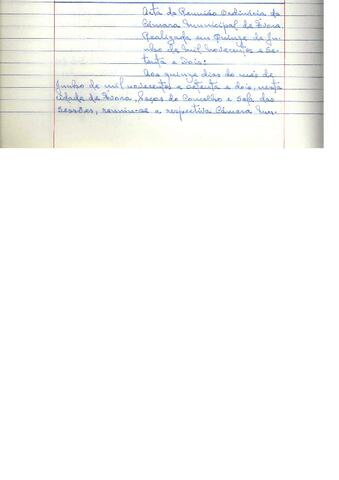 Acta da Reunião Ordinária da
Câmara Municipal de Évora.
Realizada em Quinze de Ju-
nho de Mil Novecentos e Se-
tenta e Dois:
Aos quinze dias do mês de
Junho de mil novecentos e setenta e dois, nesta
cidade de Évora, Paços do Concelho e sala das
sessões, reuniu-se a respectiva Câmara Mun-